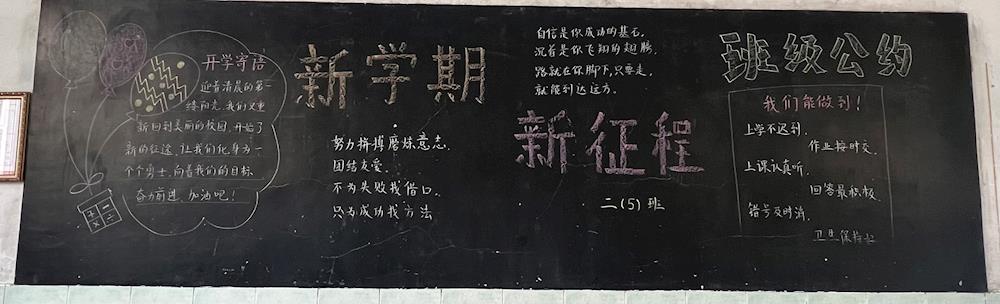 开学寄语
迎着清晨的第一
缕阳光,我们又重
新回到美丽的校园,开始了
新的征途,让我们化身为一
个个勇士,向着我们的目标
奋力前进,加油吧!
新学期
努力拼搏磨炼意志.
团结友爱.
不为失败找借口.
只为成功找方法
自信是你成功的基石.
沉着是你飞翔的翅膀.
路就在你脚下,只要走,
就能到达远方.
新征程
二(5)班
班级公约
我们能做到!
上学不迟到.
作业按时交.
上课认真听.
回答最积极.
错号及时消.
卫生保持好